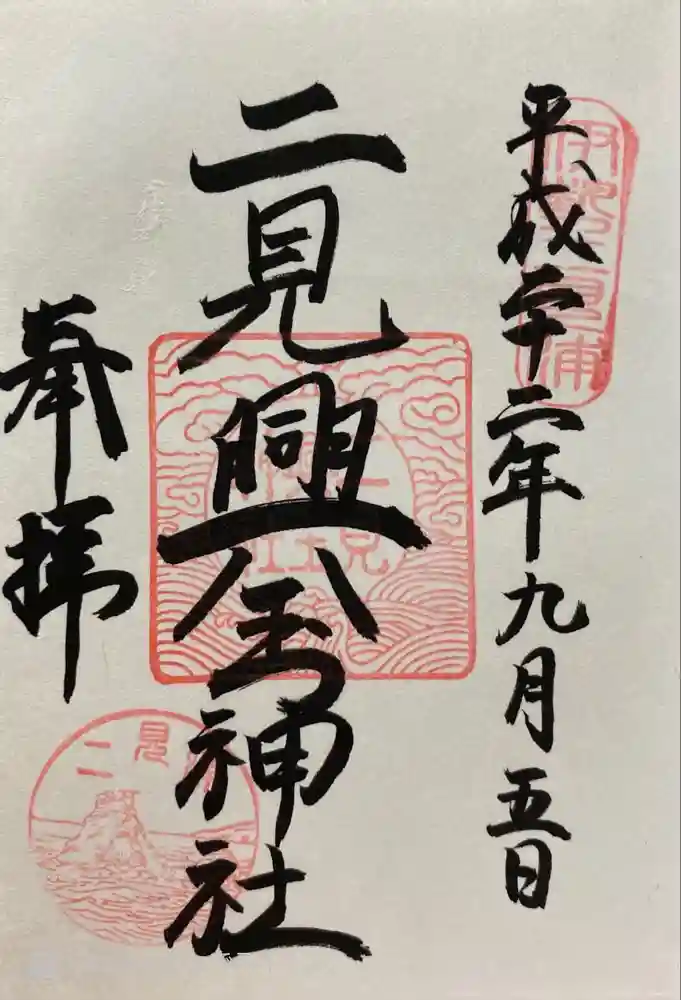 平成二十二年九月五日
伊勢二見浦
二見興玉神社
奉拝
二見